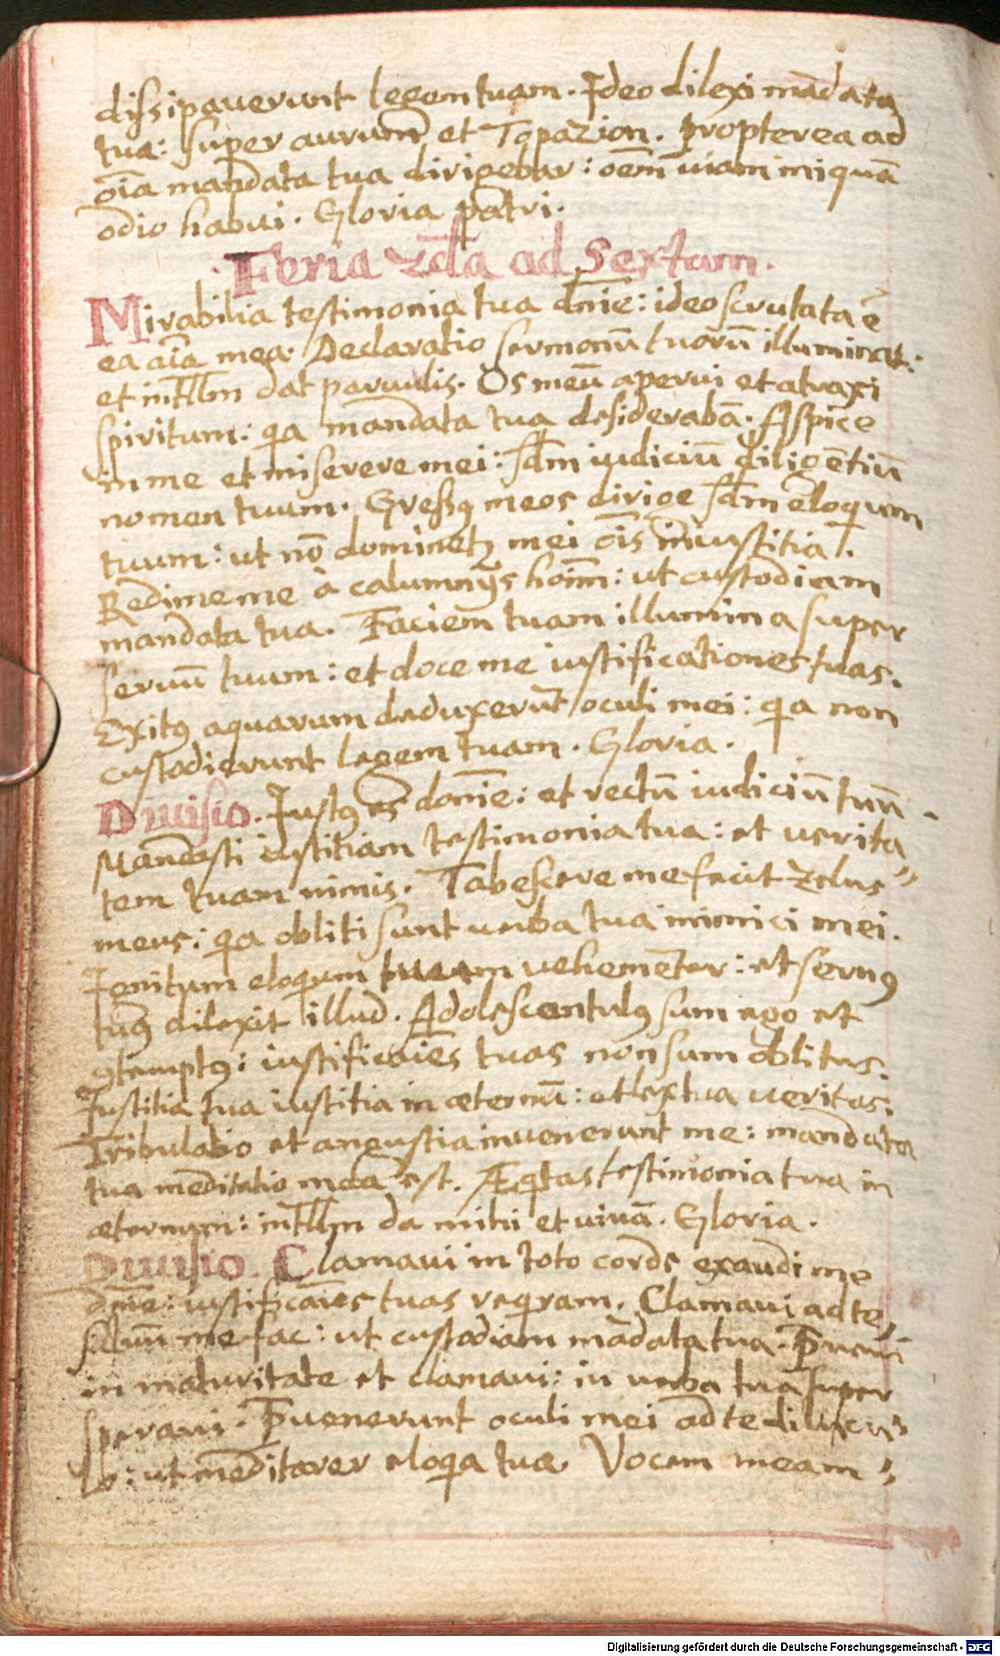 dissipauerunt legem tuam. Ideo dilexi mādata
tua: super aurum et Topazion. Propterea ad
oīa mandata tua dirigebar: oēm uiam iniquā
odio habui. Gloria patri.
Feria 2da ad Sextam.
Mirabilia testimonia tua dnīe: ideo scrutata ē
ea aīa mea. Declaratio sermonū tuorū illuminat:
et intllm dat paruulis. Os meū aperui et atraxi
spiritum: qa mandata tua desiderabā. Aspice
in me et miserere mei: scdm iudiciū diligētiū
nomen tuum. Gressꝰ meos dirige scdm eloqium
tuum: ut nō dominetꝰ mei oīs iniustitia.
Redime me à calumnijs hoīm: ut custodiam
mandata tua. Faciem tuam illumina super
seruū tuum: et doce me iustificationes tuas.
Exitꝰ aquarum deduxerūt oculi mei: qa non
custodierunt legem tuam. Gloria.
Diuisio. Iustꝰ es domīe: et rectū iudiciū tuū.
Mandasti iustitiam testimonia tua: et uerita〃
tem tuam nimis. Tabescere me fecit zelus
meus: qa obliti sunt uerba tua inimici mei.
Ignitum eloqium tuum uehemēter: et seruꝰ
tuꝰ dilexit illud. Adolescentulꝰ sum ego et
ꝯtemptꝰ: iustificaōies tuas non sum oblitus.
Iustitia tua iustitia in æternū: et lex tua ueritas.
Tribulatio et angustia inuenerunt me: mandata
tua meditatio mea est. Æqitas testimonia tua in
æternum: intllm da mihi et uiuā. Gloria.
Diuisio. Clamaui in toto corde exaudi me
dnīe: iustificaōies tuas reqiram. Clamaui ad te,
saluū me fac: ut custodiam mādata tua. P̄ueni
in maturitate et clamaui: in uerba tua super
speraui. P̄uenerunt oculi mei ad te dilucu〃
lo: ut meditarer eloqia tua. Vocem meam〃
Digitalisierung gefördert durch die Deutsche Forschungsgemeinschaft - DFG